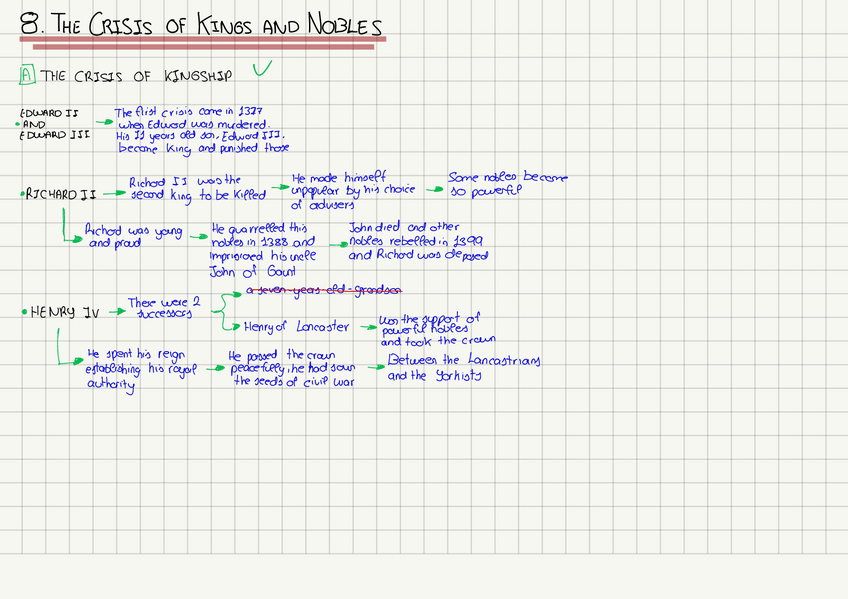 8. THE CRISIS OF KINGS AND NOBLES
A THE CRISIS OF KINGSHIP
EDWARD II
• AND
EDWARD III
The first crisis came in 1327
when Edward was murdered.
His 11 years old son, Edward III,
become king and punished those
• RICHARD II
Richard II was the
second king to be killed
He made himself
unpopular by his choice
of advisers
Some nobles become
so powerful
Richard was young
and proud
He quarrelled this
nobles in 1388 and
imprisoned his uncle
John of Gaunt
John died and other
nobles rebelled in 1399
and Richard was deposed
• HENRY IV
There were 2
successors
a seven-years-old-grandson
Henry of Lancaster
Won the support of
powerful nobles
and took the crown
He spent his reign
establishing his royal
authority
He passed the crown
peacefully, he had sown
the seeds of civil war
Between the Lancastrians
and the Yorkists